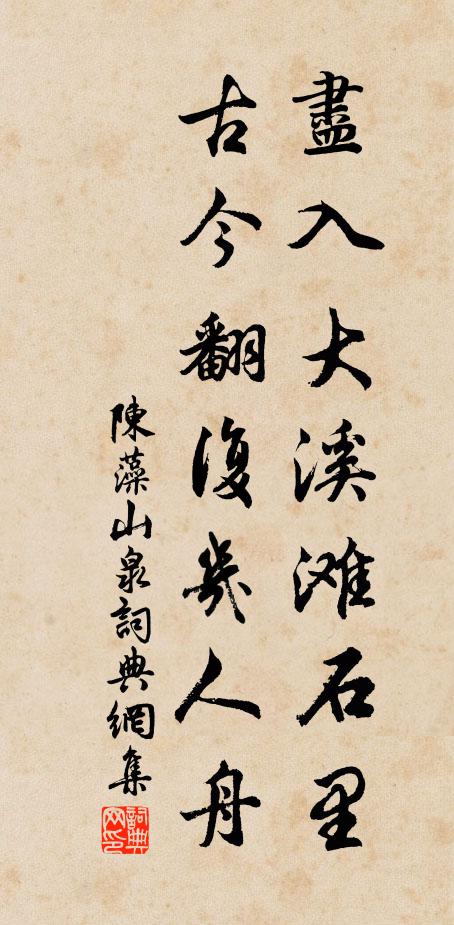 盡入大溪滩石里
古今翻復幾人舟
陳藻山泉詞典網集
詞典网印